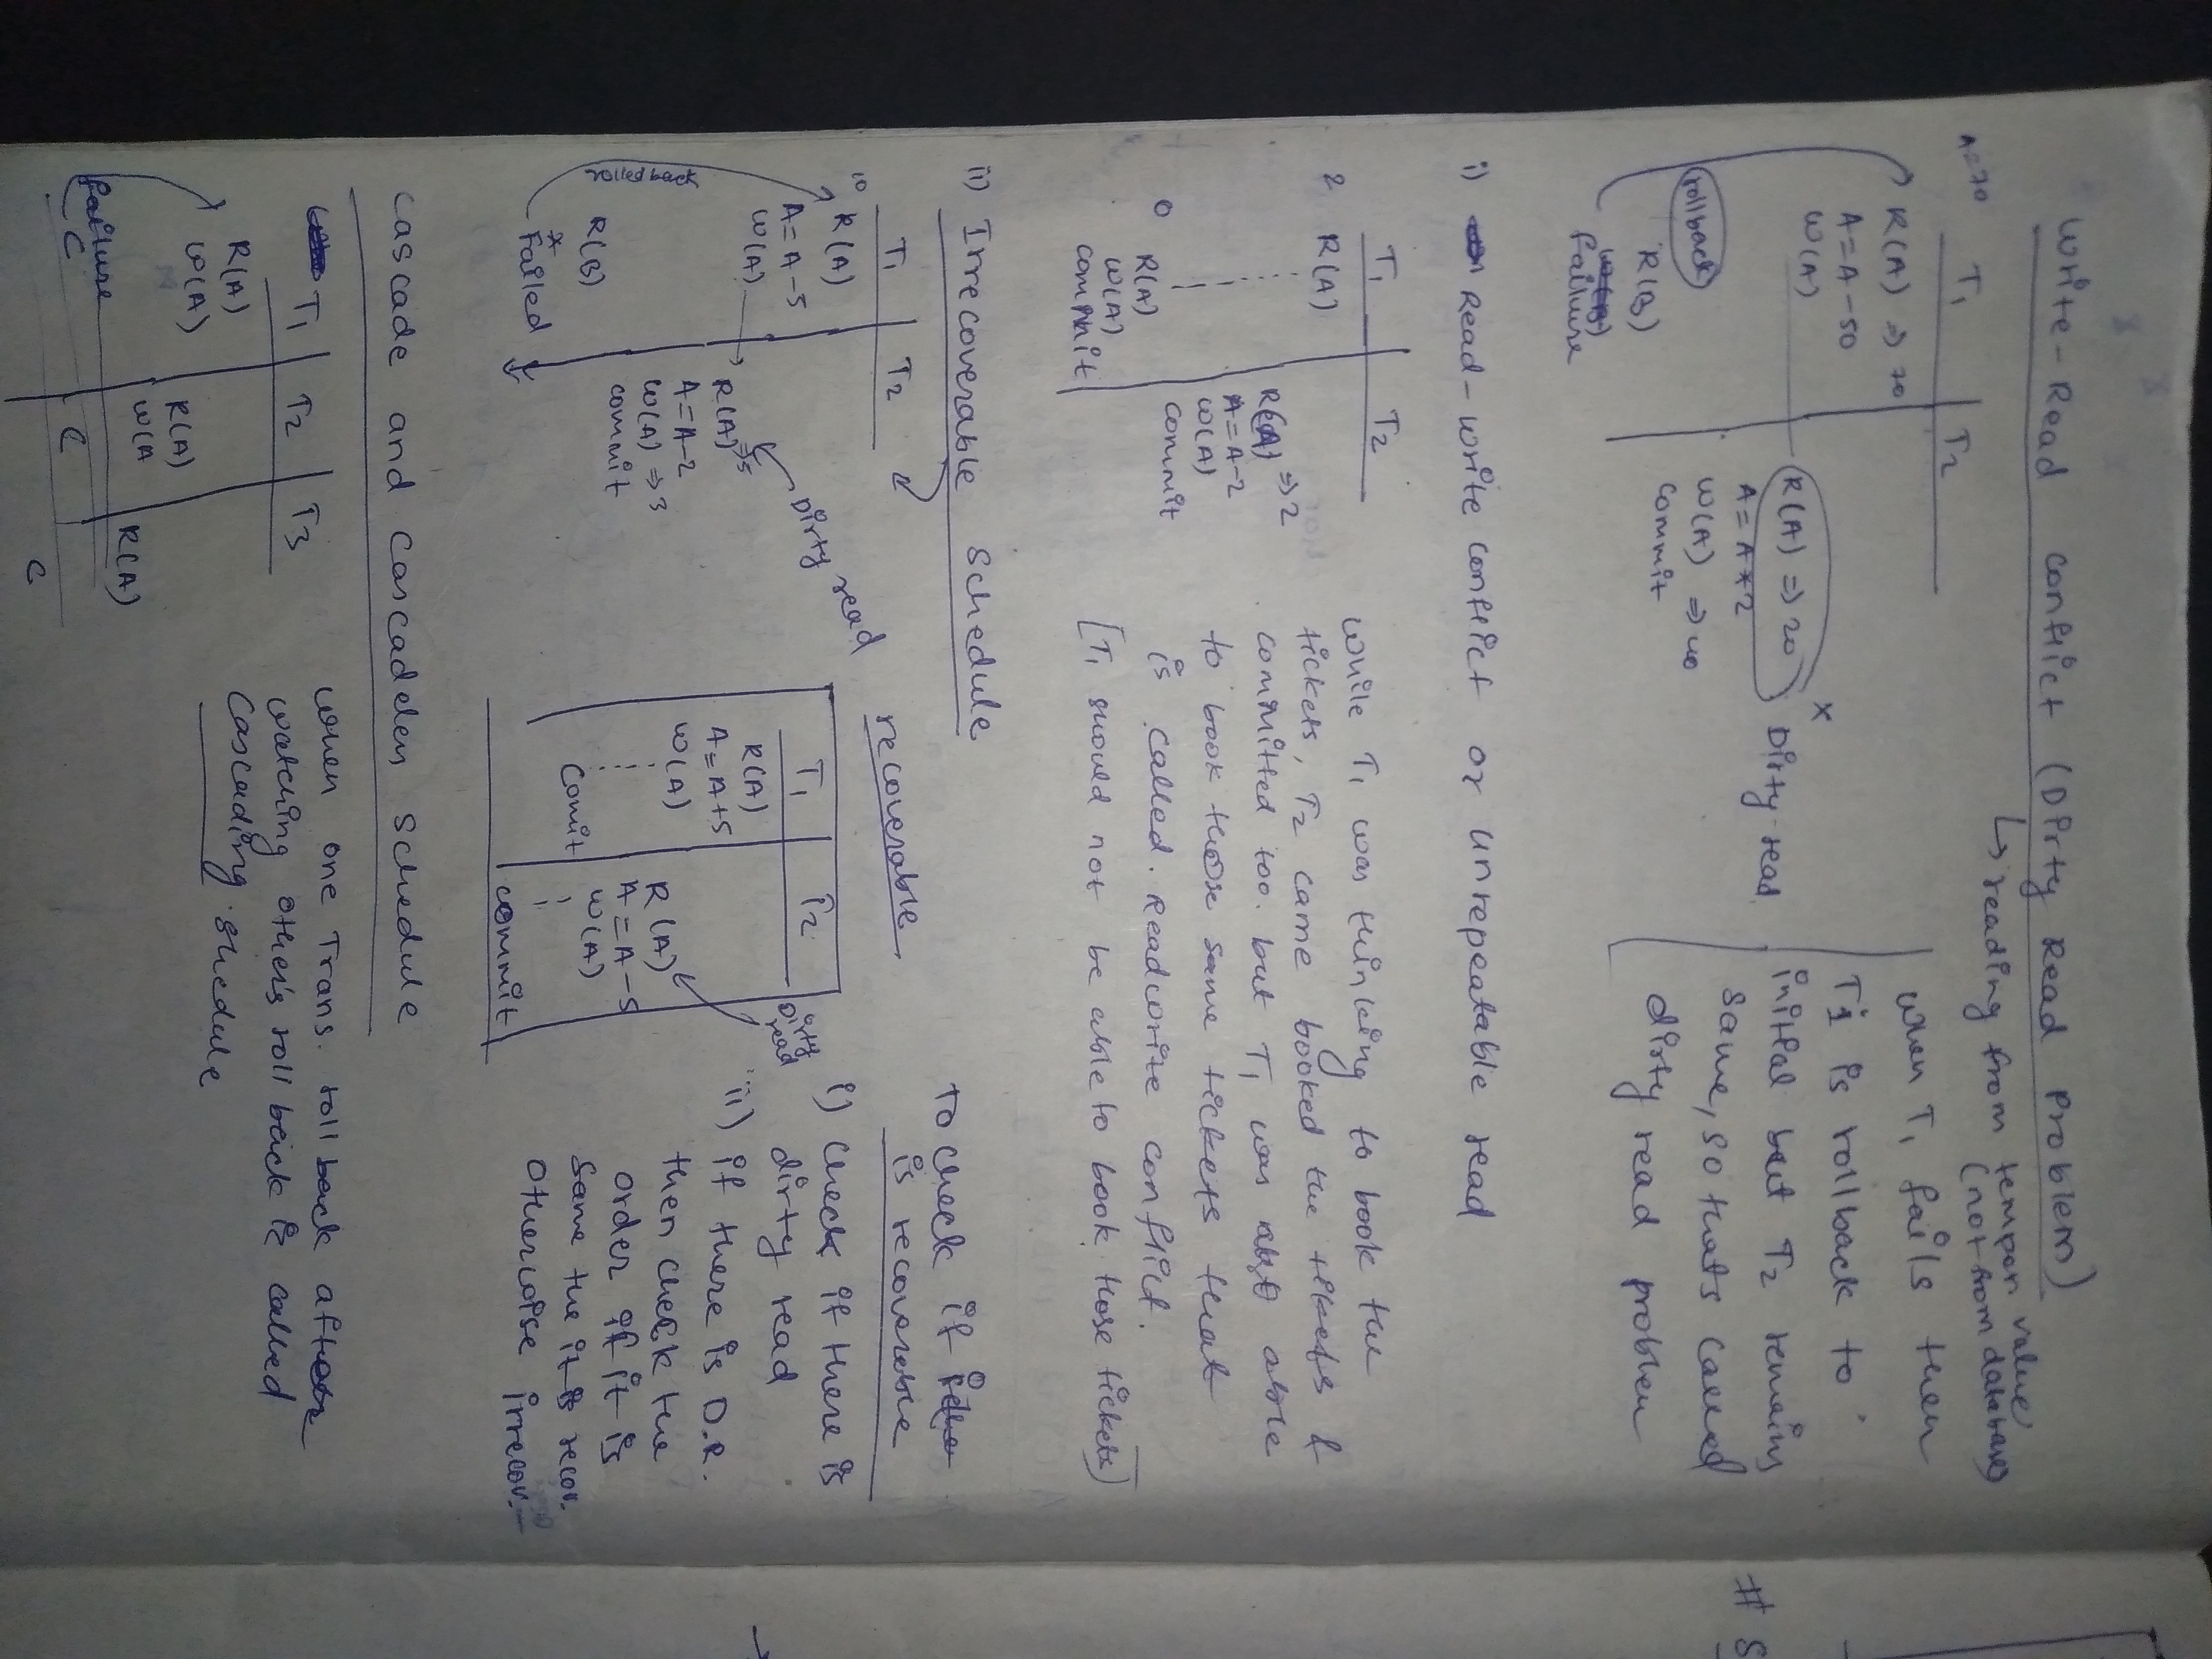 Write-Read conflict (Dirty Read Problem)
↳ reading from tempor value
(not from database)
A=70
T1 T2
R(A) => 70
A = A-50
W(A)
R(A) => 20 x Dirty read
A = A*2
W(A) => 40
commit
rollback
R(B)
failure
when T1 fails then
T1 is rollback to
initial but T2 remains
same, so thats called
dirty read problem
i) Read-write conflict or unrepeatable read
T1 T2
2 R(A)
R(A) => 2
A = A-2
W(A)
commit
0 R(A)
W(A)
commit
while T1 was thinking to book the
tickets, T2 came booked the tickets &
commited too. but T1 was able
to book those same tickets that
is called. Readwrite conflict.
[T1 should not be able to book those tickets]
ii) Irrecoverable schedule
T1 T2
10 R(A)
A = A-5
W(A)
R(A) => 5 Dirty read
A = A-2
W(A) => 3
commit
R(B)
* Failed
rolledback
recoverable
T1 T2
R(A)
A = A+5
W(A)
R(A) Dirty read
A = A-5
W(A)
Commit
commit
To check if
is recoverable
i) Check if there is
dirty read
ii) if there is D.R.
then check the
order if it is
same the it is recov.
otherwise irrecov.
Cascade and Cascadeless schedule
T1 T2 T3
R(A)
W(A)
R(A)
W(A
R(A)
failure
C
C
C
when one Trans. roll back after
watching other's roll back is called
Cascading shedule
#